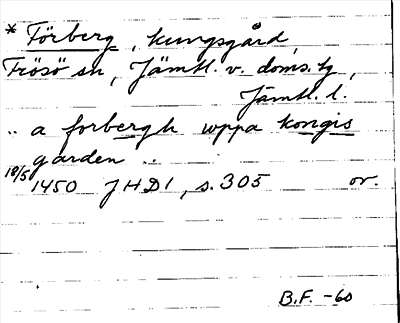 * Förberg, kungsgård
Frösö sn, Jämtl. v. doms. tg,
Jämtl. l.
.. a forbergh uppa kongis
garden ..
18/5 1450 JHD1, s. 305 or.
B.F. -60